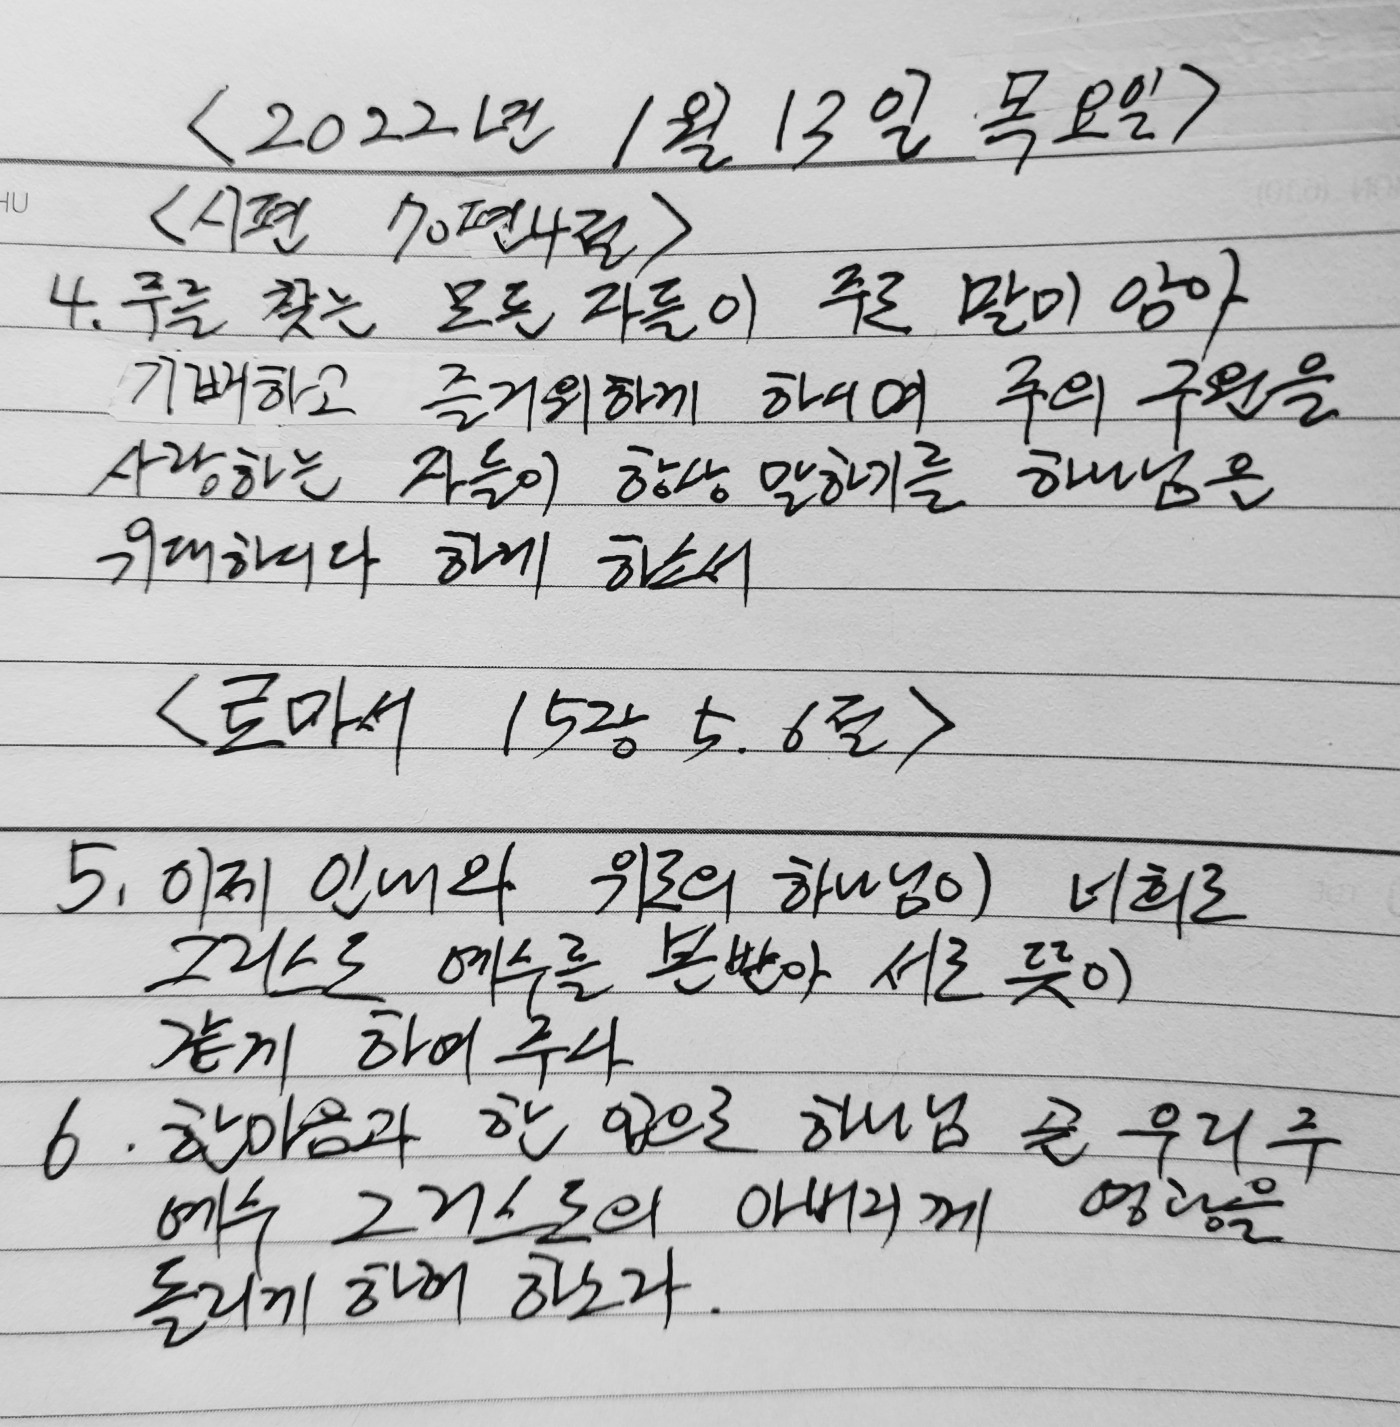 <2022년 1월 13일 목요일>
HU
<시편 70편4절>
4. 주를 찾는 모든 자들이 주로 말미 암아
기뻐하고 즐거워하게 하시며 주의 구원을
사랑하는 자들이 항상 말하기를 하나님은
위대하시다 하게 하소서
<로마서 15장 5. 6절>
5. 이제 인내와 위로의 하나님이 너희로
그리스도 예수를 본받아 서로 뜻이
같게 하여 주사
6. 한마음과 한 입으로 하나님 곧 우리 주
예수 그리스도의 아버지께 영광을
돌리게 하려 하노라.